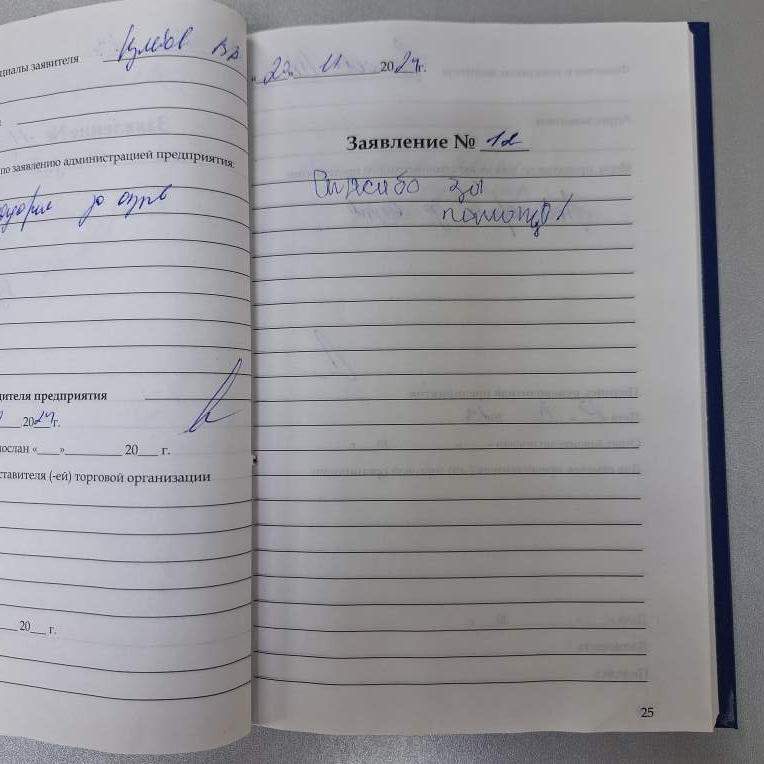 циалы заявителя Кулебов В.В.
по заявлению администрацией предприятия:
за отзыв
дителя предприятия
2024г.
послан «___»__________ 20___ г.
ставителя (-ей) торговой организации
20___ г.
«23 11 2024г.
Заявление № 12
Спасибо за
помощь!
25